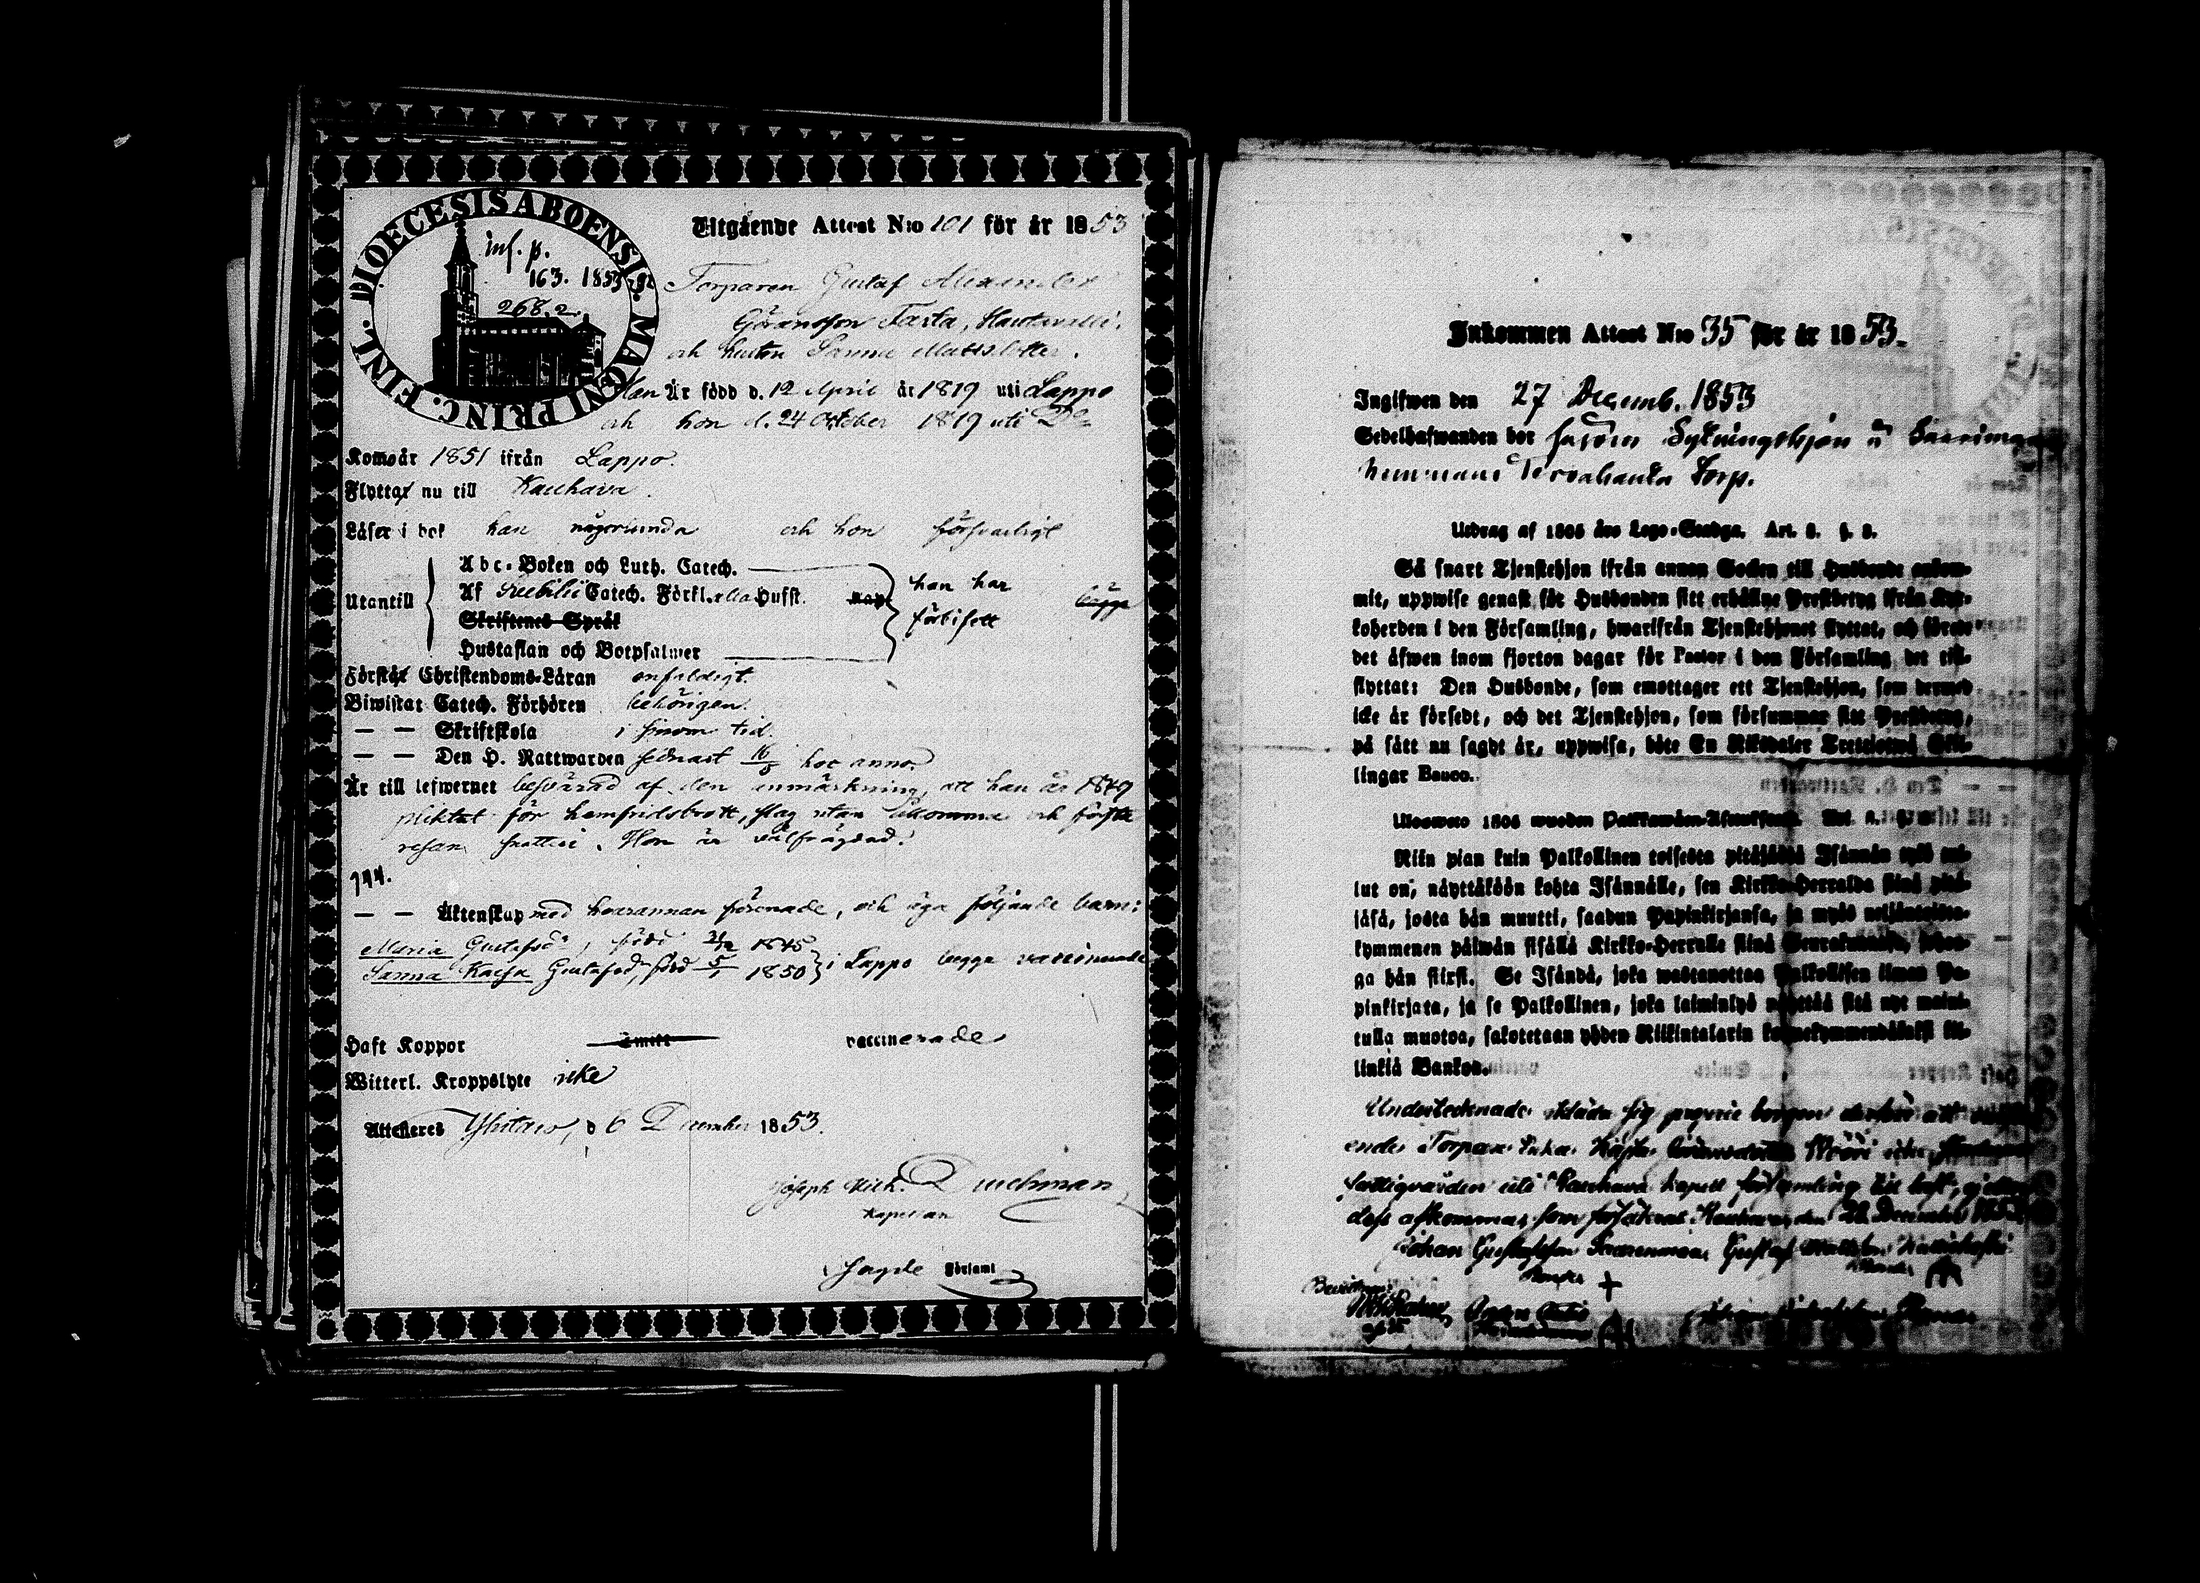 DIOECESIS ABOENSIS. MAGNI PRINC. FINL.
inf. p.
163. 1853
268.2.
Utgående Attest N:o 101 för år 1853
Torparen Gustaf Alexander
Göransson Tasta, Hautavelli.
och hustru Sanna Mattsdotter.
Han Är född d. 12 April år 1819 uti Lappo
och hon d. 24 October 1819 uti Do
Kom år 1851 ifrån Lappo.
Flyttat nu till Kauhava.
Läser i bok han någorlunda och hon försvarligt
Utantill
Abc-Boken och Luth. Catech.
Af Catech. Förkl. Husft.
Skriftenes Språk
Hustaflan och Botpsalmer
han har
förbisett
begge
Förstår Christendoms-Läran enfaldigt.
Biwistat Catech. Förhören behörigen.
— — Skriftskola i sinom tid.
— — Den H. Nattwarden sednast 16/5 hoc anno.
Är till lefwernet besvärad af den anmärkning, att han år 1849
pliktat för hemfridsbrott, slag utan åkomma och första
resan snatteri. Hon är välfrägdad.
744.
— — Äktenskap med hvarannan förenade, och äga följande barn:
Maria Gustafsdr, född 21/12 1845
Sanna Kaisa Gustafsdr, född 5/1 1850 i Lappo begge vaccinerade
Haft Koppor vaccinerade
Witterl. Kroppslyte icke
Attesteras Ylistaro, d 6 December 1853.
Joseph Mich.
Kapellan
i Sagde Församl
Inkommen Attest N:o 35 för år 1853.
Ingifwen den 27 Decemb. 1853
Sedelhafwanden bor såsom Sytningshjon å
hemmans Torp.
Utdrag af 1805 års Lego-Stadga. Art. 2. §. 8.
Så snart Tjenstehjon ifrån annan Socken till Husbonde ankom-
mit, uppwise genast för Husbonden sitt erhållne Prestbetyg ifrån Kyr-
koherden i den Församling, hwarifrån Tjenstehjonet flyttat, och förete
det äfwen inom fjorton dagar för Pastor i den Församling det till-
flyttat: Den Husbonde, som emottager ett Tjenstehjon, som dermed
icke är försedt, och det Tjenstehjon, som försummar sitt Prestbetyg,
på sätt nu sagdt är, uppwisa, böte En Riksdaler Trettiotwå Skil-
lingar Banco.
Ulosweto 1805 wuoden Palkkawäen-Asetuksesta.
Niin pian kuin Palkollinen toisesta pitäjästä Isännän työö tul-
lut on, näyttäköön kohta Isännälle, sen Kirkko-Herralda siinä pitä-
jäsä, josta hän muutti, saadun Papinkirjansa, ja myös neljäntoista-
kymmenen päiwän sisällä Kirkko-Herralle siinä Seurakunnasa, johon-
ga hän siirsi. Se Isändä, joka wastanottaa Palkollisen ilman Pa-
pinkirjata, ja se Palkollinen, joka laiminlyö näyttää sitä nyt maini-
tulla muotoa, sakotetaan yhden Riikintalarin kolmekymmendäkaksi kil-
linkiä Bankos.
Undertecknade ikläda sig
ende
fattigvården uti Kauhava kapell församling till last,
dess afkomma, som försäkras. Kauhava den 28 December 1853
Johan Gustafsson Gustaf Mattsson
Bonde
Bevittna: